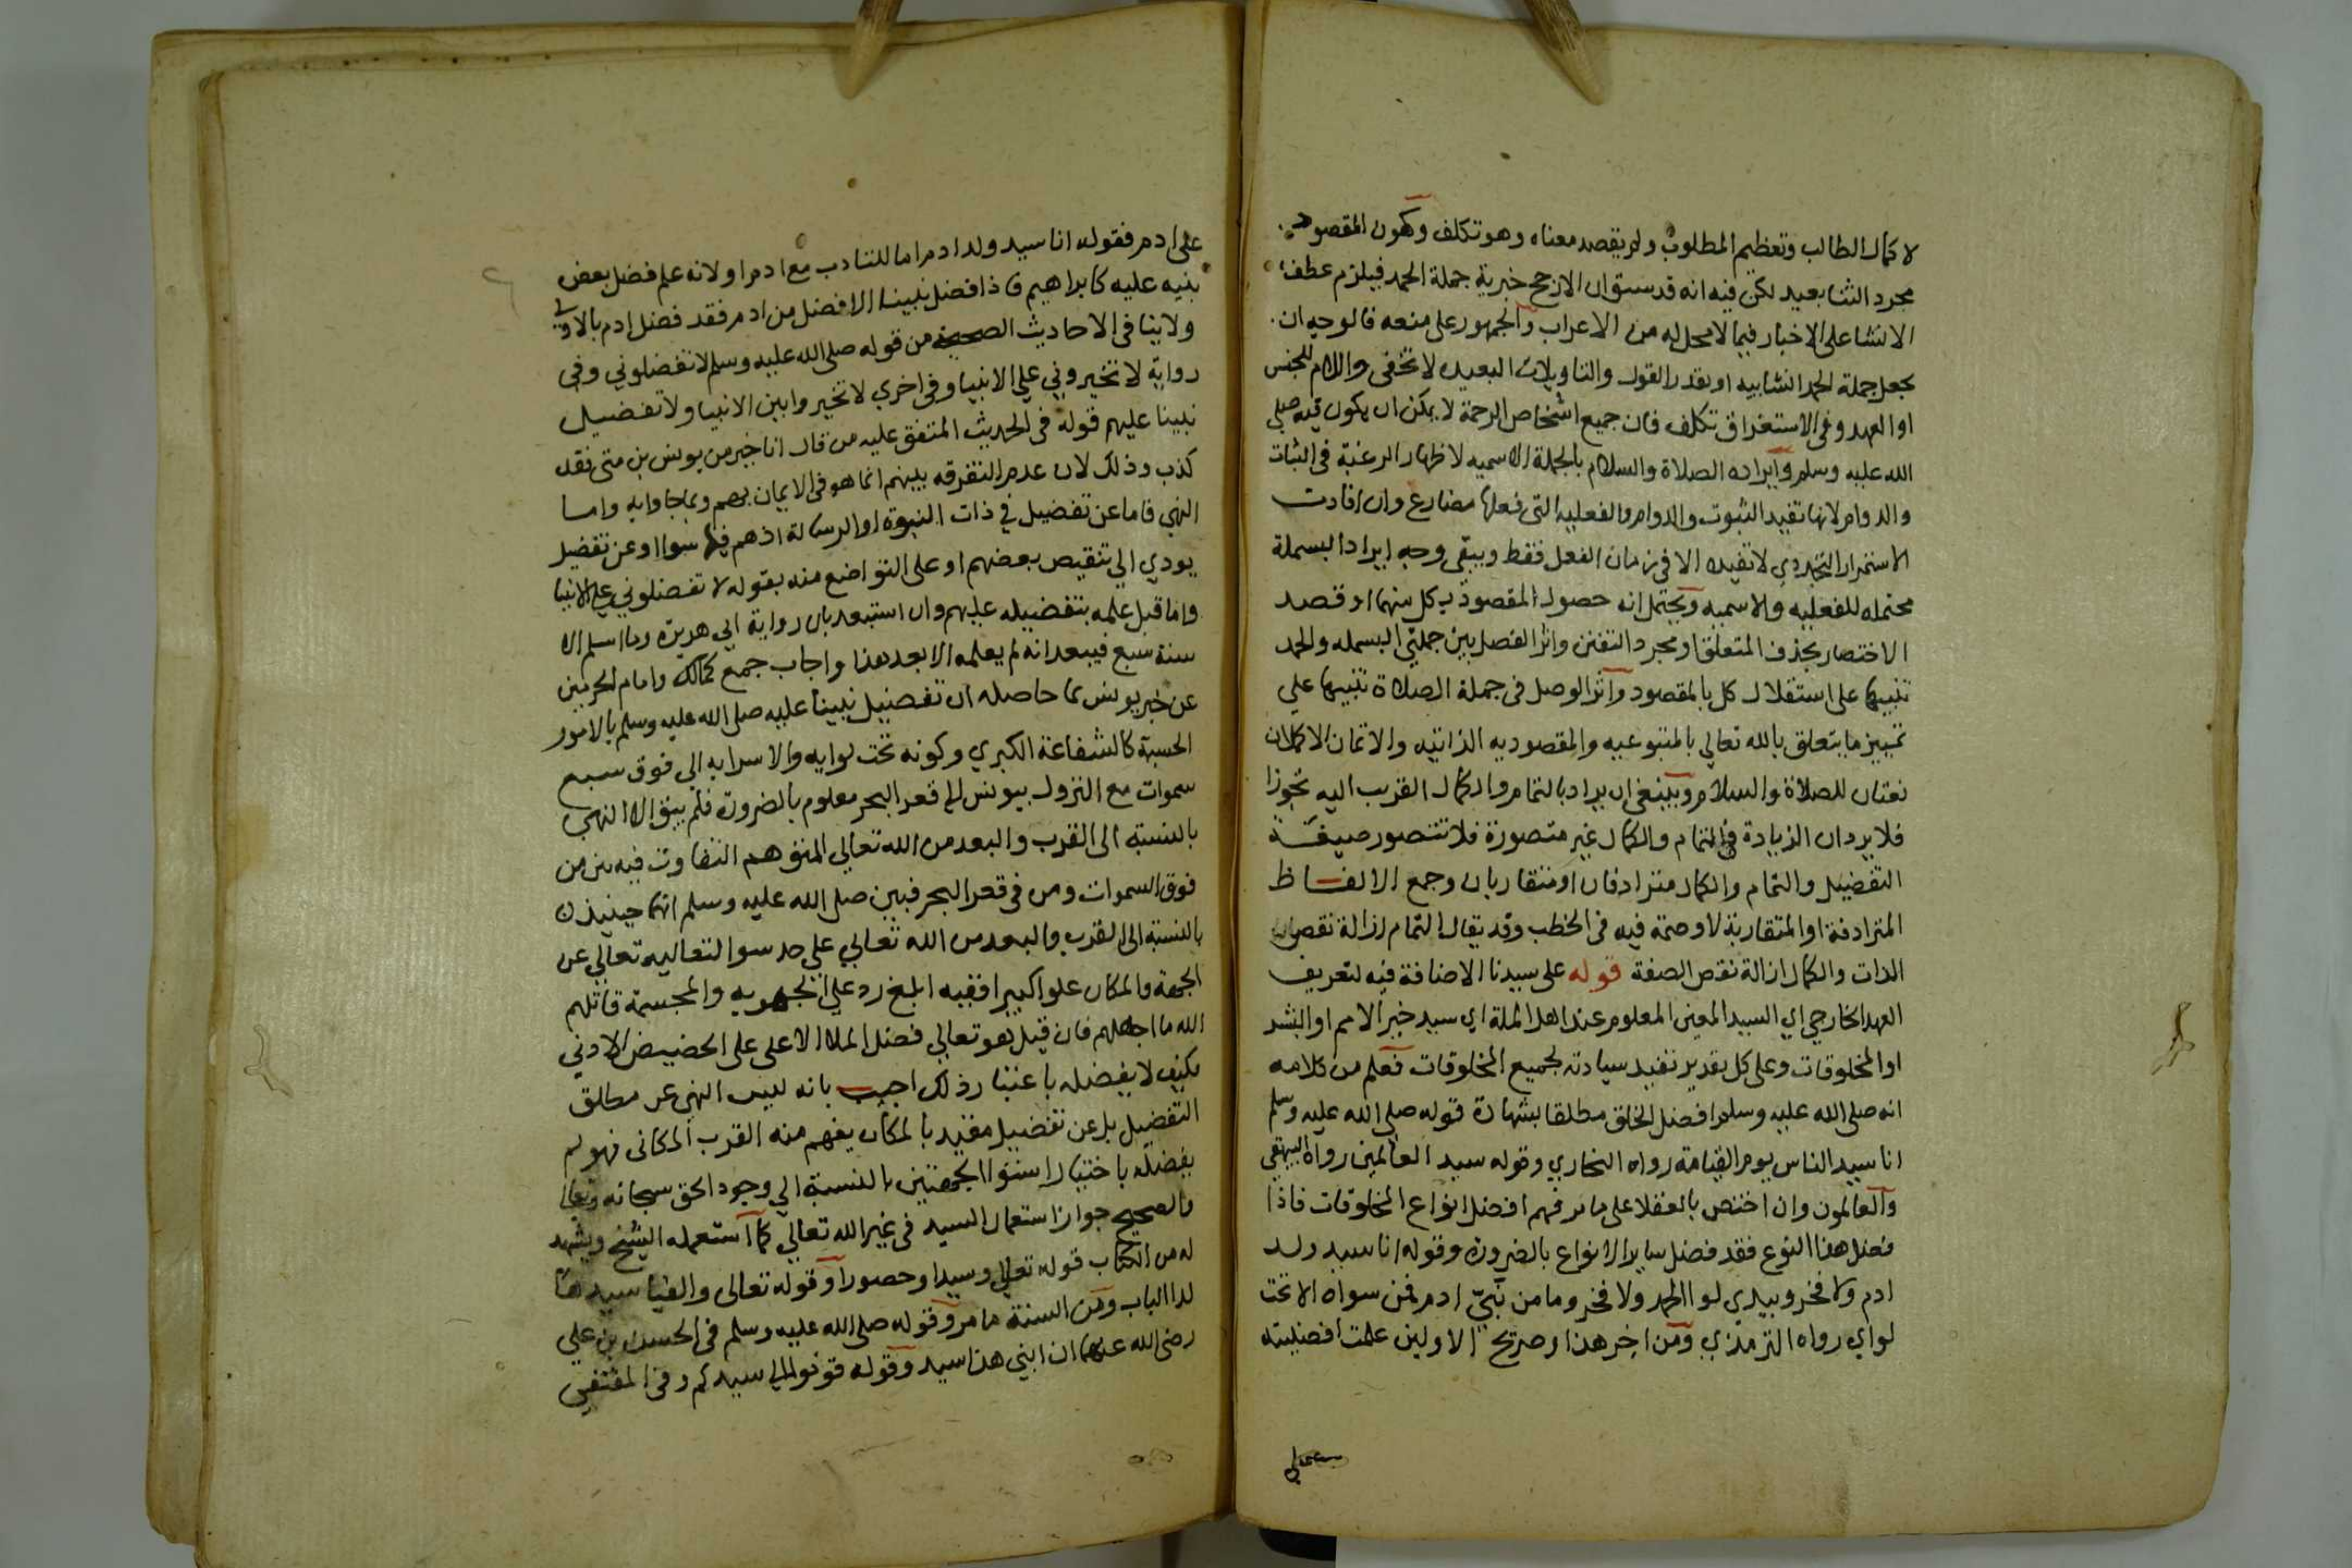 لا كمال الطالب وتعظيم المطلوب ولم يقصد معناه وهو تكلف وكون المقصود
مجرد الثنا بعيد لكن فيه انه قد سبق ان الارجح خبرية جملة الحمد فيلزم عطف
الانشا على الاخبار فيما لا محل له من الاعراب والجمهور على منعه فالوجه ان
يجعل جملة الحمد انشاييه او يقدر القول والتاويلات البعيده لا تخفى واللام للجنس
او العهد وفي الاستغراق تكلف فان جميع اشخاص الرحمة لا يمكن ان يكون فيه صلى
الله عليه وسلم وايراده الصلاة والسلام بالجملة الاسميه لاظهار الرغبة في الثبات
والدوام لانها تفيد الثبوت والدوام والفعليه التي فعلها مضارع وان افادت
الاستمرار التجددي لا تفيده الا في زمان الفعل فقط ويبقى وجه ايراد البسملة
محتمله للفعليه والاسميه ويحتمل انه حصول المقصود بكل منهما او قصد
الاختصار بحذف المتعلق او مجرد التفنن واثر الفصل بين جملتي البسمله والحمد
تنبيها على استقلال كل بالمقصود واثر الوصل في جملة الصلاة تنبيها على
تمييز ما يتعلق بالله تعالى بالمتبوعيه والمقصوديه الذاتيه والاتمان الاكملان
نعتان للصلاة والسلام وينبغي ان يراد بالتمام والكمال القرب اليه تجوزا
فلا يرد ان الزيادة في التمام والكمال غير متصورة فلا تتصور صيغة
التفضيل والتمام والكمال مترادفان او متقاربان وجمع الالفاظ
المترادفة او المتقاربة لا وصمة فيه في الخطب وقد يقال التمام ازالة نقصان
الذات والكمال ازالة نقص الصفة قوله على سيدنا الاضافة فيه لتعريف
العهد الخارجي اي السيد المعين المعلوم عند اهل الملة اي سيد خير الامم او البشر
او المخلوقات وعلى كل تقدير تفيد سيادته لجميع المخلوقات فعلم من كلامه
انه صلى الله عليه وسلم افضل الخلق مطلقا بشهادة قوله صلى الله عليه وسلم
انا سيد الناس يوم القيامة رواه البخاري وقوله سيد العالمين رواه البيهقي
والعالمون وان اختص بالعقلا على ما مر فهم افضل انواع المخلوقات فاذا
فضل هذا النوع فقد فضل ساير الانواع بالضرورة وقوله انا سيد ولد
ادم ولا فخر وبيدي لوا الحمد ولا فخر وما من نبي ادم فمن سواه الا تحت
لواي رواه الترمذي ومن اخر هذا وصريح الاولين علمت افضليته
على ادم فقوله انا سيد ولد ادم اما للتادب مع ادم او لانه علم فضل بعض
بنيه عليه كابراهيم فاذا فضل نبينا الافضل من ادم فقد فضل ادم بالاولى
ولا ينافي الاحاديث الصحيحة من قوله صلى الله عليه وسلم لا تفضلوني وفي
رواية لا تخيروني على الانبيا وفي اخري لا تخيروا بين الانبيا ولا تفضيل
نبينا عليهم قوله في الحديث المتفق عليه من قال انا خير من يونس بن متى فقد
كذب وذلك لان عدم التفرقه بينهم انما هو في الايمان بهم وبما جاوا به واما
النهي فاما عن تفضيل في ذات النبوة او الرسالة اذ هم فيها سوا او عن تفضيل
يودي الى تنقيص بعضهم او على التواضع منه بقوله لا تفضلوني على الانبيا
واما قبل علمه بتفضيله عليهم وان استبعد بان رواية ابي هريرة وما اسلم الا
سنة سبع فيبعد انه لم يعلمه الا بعد هذا واجاب جمع كمالك وامام الحرمين
عن خبر يونس بما حاصله ان تفضيل نبينا عليه صلى الله عليه وسلم بالامور
الحسية كالشفاعة الكبري وكونه تحت لوايه والاسرا به الى فوق سبع
سموات مع النزول بيونس الى قعر البحر معلوم بالضرورة فلم يبق الا النهي
بالنسبة الى القرب والبعد من الله تعالي المتوهم التفاوت فيه بين من
فوق السموات ومن في قعر البحر فبين صلى الله عليه وسلم انهما حينيذ
بالنسبة الى القرب والبعد من الله تعالي على حد سوا لتعاليه تعالي عن
الجهة والمكان علوا كبيرا ففيه ابلغ رد على الجهويه والمجسمة قاتلهم
الله ما اجهلهم فان قيل هو تعالي فضل الملا الاعلى على الحضيض الادني
فكيف لا يفضله باعتبار ذلك اجيب بانه ليس النهي عن مطلق
التفضيل بل عن تفضيل مقيد بالمكان يفهم منه القرب المكاني فهو لم
يفضله باختيار استوا الجهتين بالنسبة الي وجود الحق سبحانه وتعالى
والصحيح جواز استعمال السيد في غير الله تعالي كما استعمله الشيخ ويشهد
له من الكتاب قوله تعالي وسيدا وحصورا وقوله تعالى والفيا سيدها
لدا الباب ومن السنة ما مر وقوله صلى الله عليه وسلم في الحسن بن علي
رضى الله عنهما ان ابني هذا سيد وقوله قوموا الى سيدكم وفي المقتفي